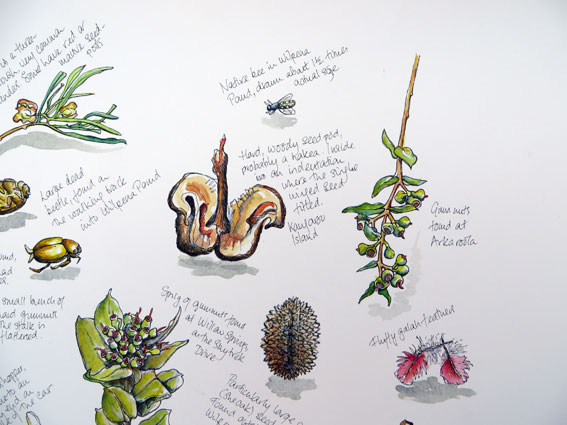 is a three
very common
Some have red or
mauve seed
pods
Native bee in Wilpena
Pound, drawn about 1½ times
actual size
Large dead
beetle, found on
the walking track
into Wilpena Pound
Hard, woody seed pod,
probably a Hakea. Inside
is an indentation
where the single
winged seed
fitted.
Kangaroo
Island
Gum nuts
found at
Arkaroola
small bunch of
gumnuts
the stalk is
flattened.
Sprig of gumnuts found
at Willow Springs
on the Skytrek
Drive
Fluffy galah feathers
Particularly large
(sheoak) seed
Found
the car